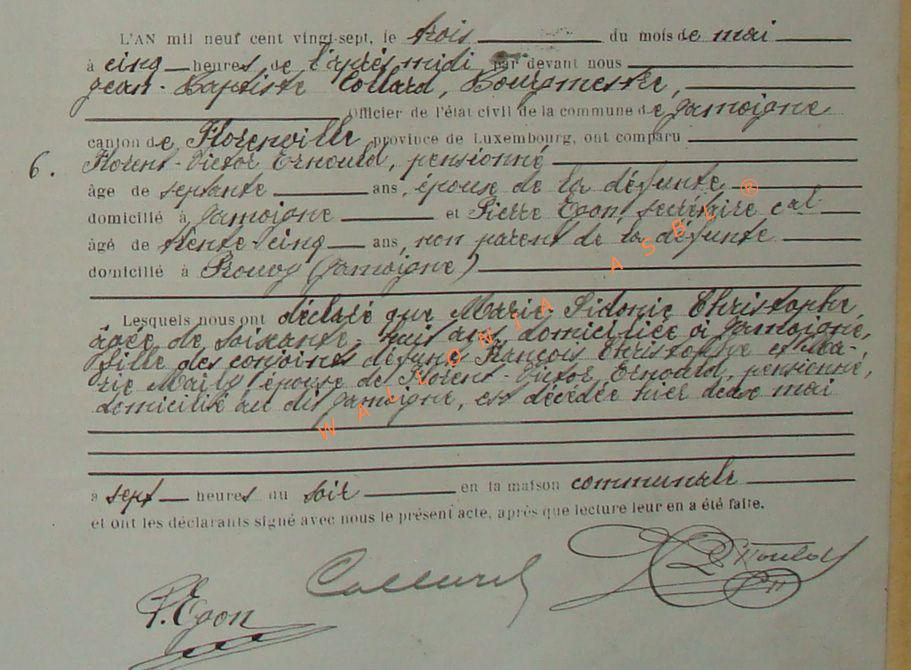 L'AN mil neuf cent vingt-sept, le trois du mois de mai
à cinq heures de l'après midi par devant nous
Jean-Baptiste Collard, Bourgmestre,
Officier de l'état civil de la commune de Jamoigne
canton de Florenville province de Luxembourg, ont comparu
6. Florent-Victor Ernould, pensionné
âge de septante ans, époux de la défunte
domicilié à Jamoigne et Pierre Egon, secrétaire cal
âgé de trente cinq ans, non parent de la défunte
domicilié à Prouvy (Jamoigne)
Lesquels nous ont déclaré que Marie Sidonie Christophe,
âgée de soixante-huit ans, domiciliée à Jamoigne,
fille des conjoints défunts François Christophe et Ma-
rie épouse de Florent-Victor Ernould, pensionné,
domicilié au dit Jamoigne, est décédée hier deux mai
à sept heures du soir en la maison communale
et ont les déclarants signé avec nous le présent acte, après que lecture leur en a été faite.
P. Egon Collard Ernould
WALLONIA ASBL ®